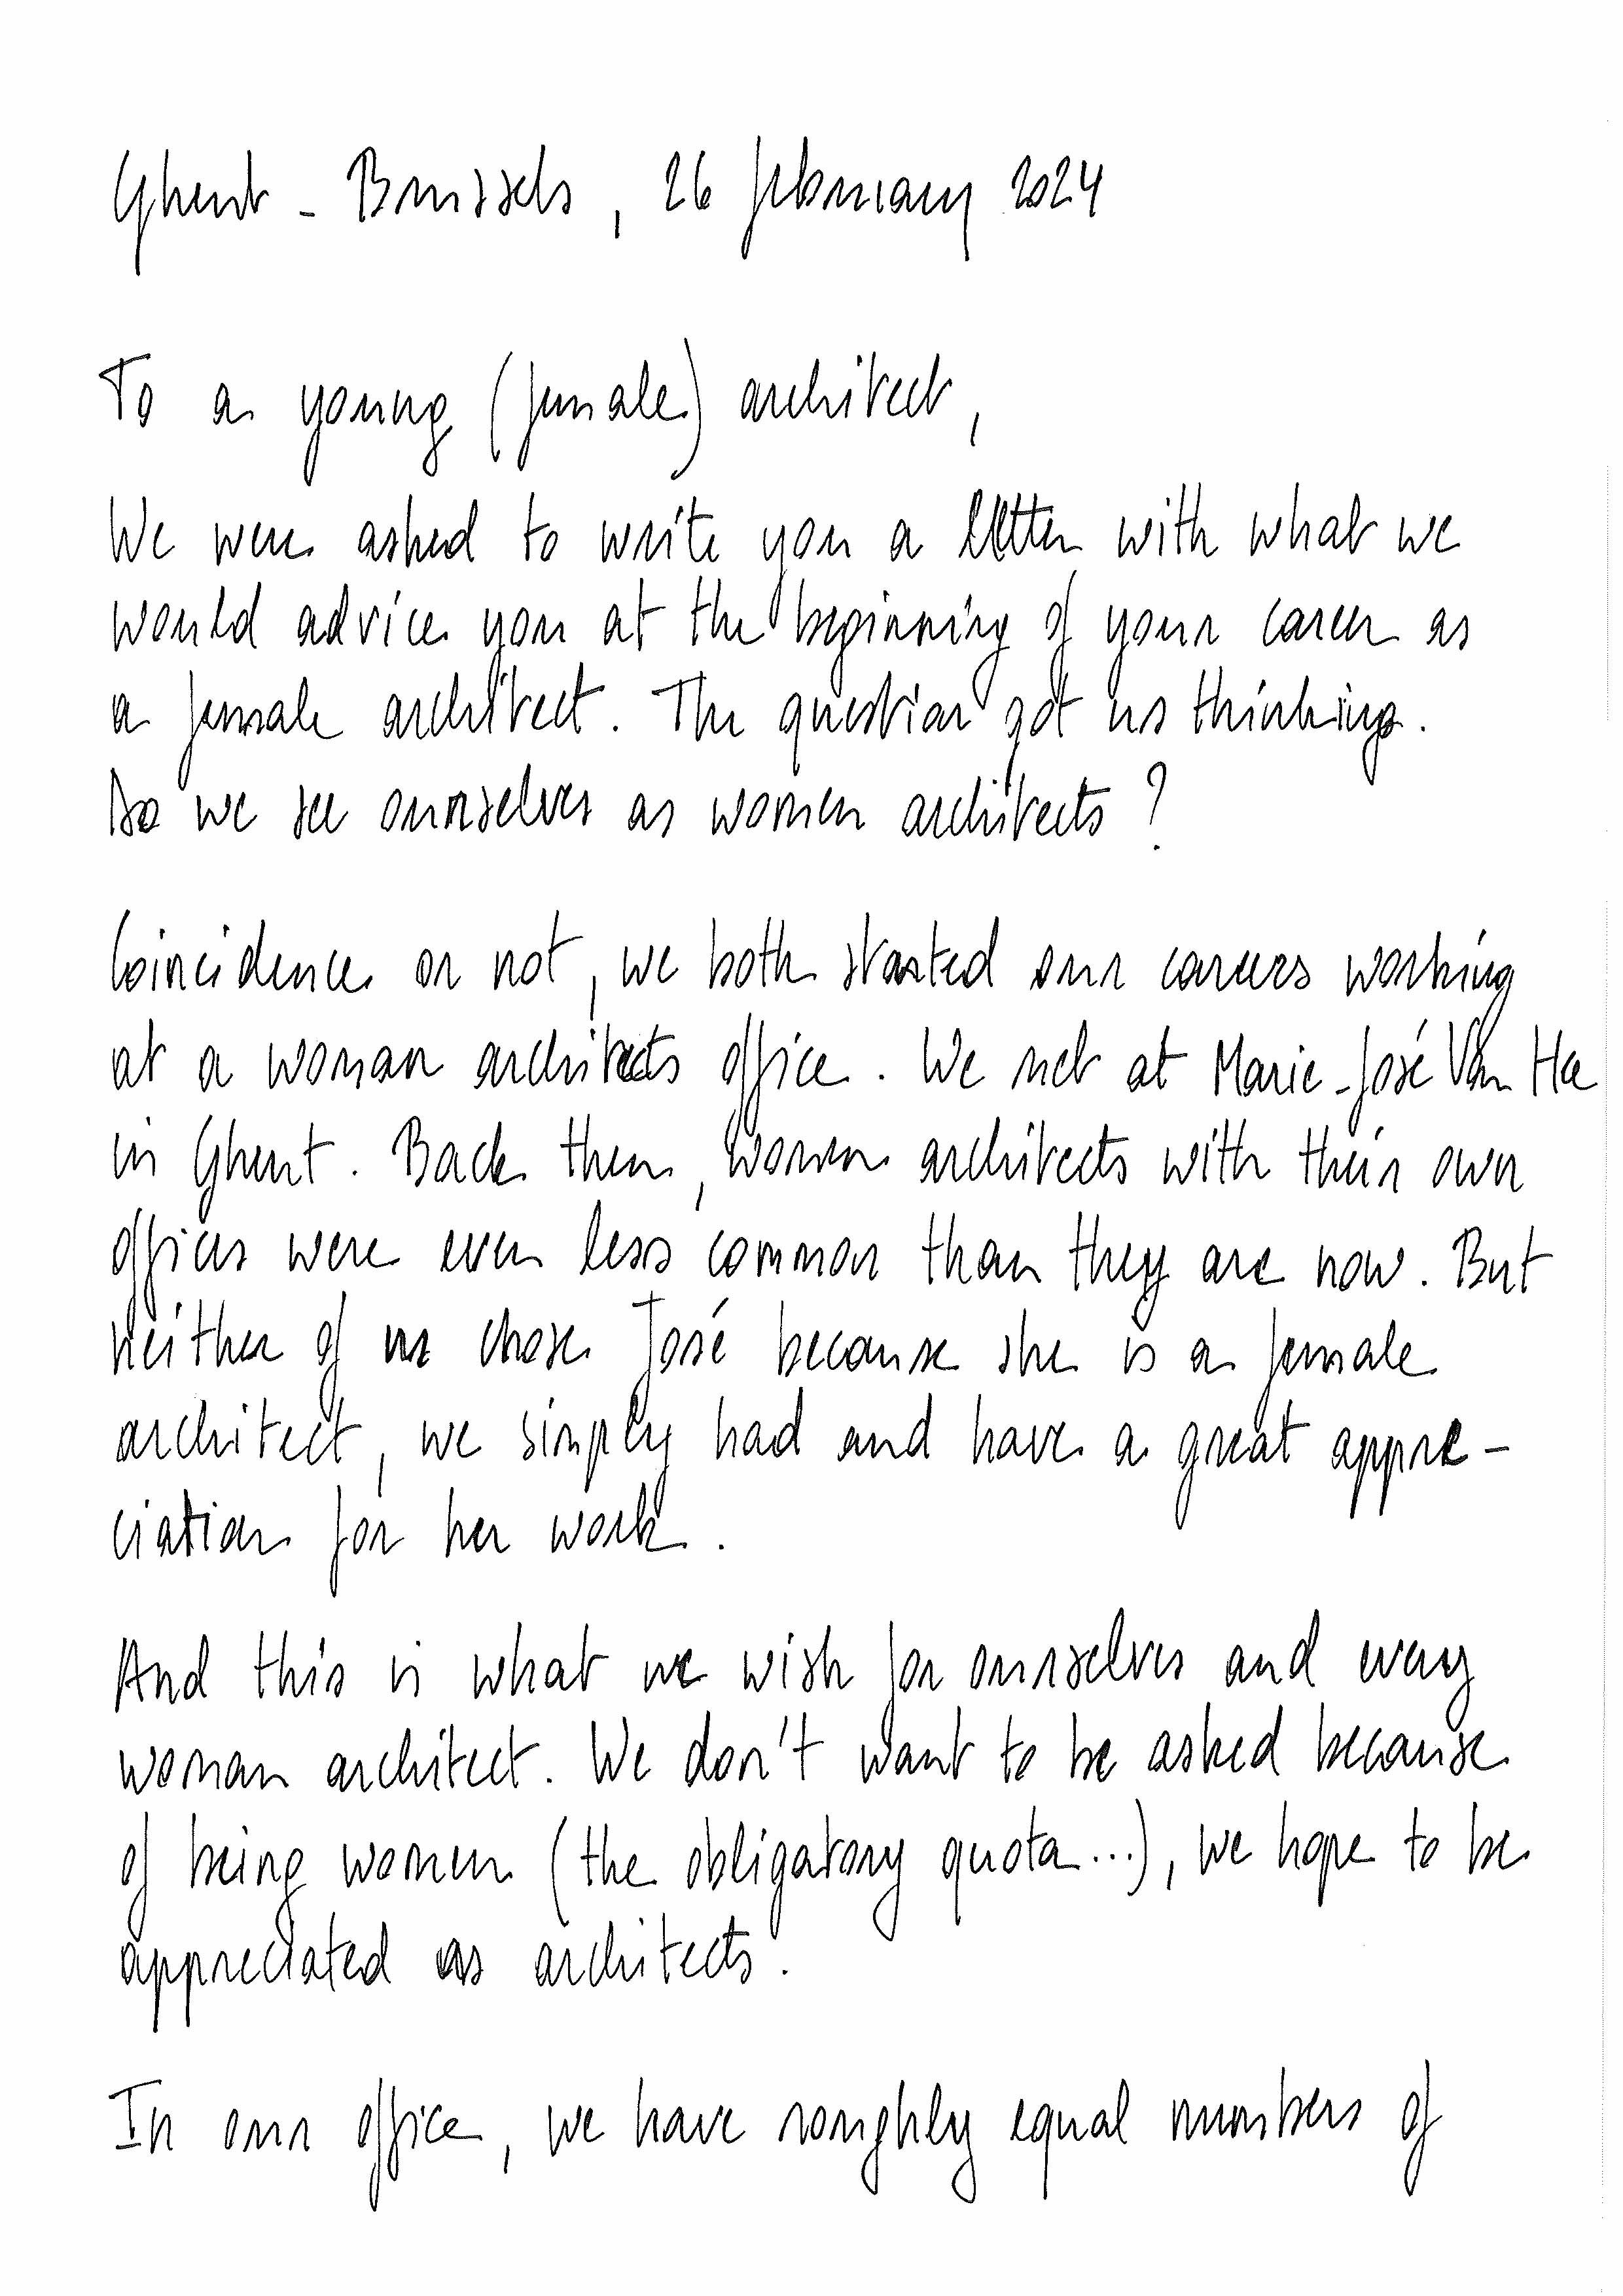 Ghent - Brussels, 26 february 2024
To a young (female) architect,
We were asked to write you a letter with what we
would advice you at the beginning of your career as
a female architect. The question got us thinking.
Do we see ourselves as women architects?
Coincidence or not, we both started our careers working
at a woman architects office. We met at Marie-José Van Hee
in Ghent. Back then, women architects with their own
offices were even less common than they are now. But
neither of us chose José because she is a female
architect, we simply had and have a great appre-
ciation for her work.
And this is what we wish for ourselves and every
woman architect. We don't want to be asked because
of being women (the obligatory quota...), we hope to be
appreciated as architects.
In our office, we have roughly equal numbers of